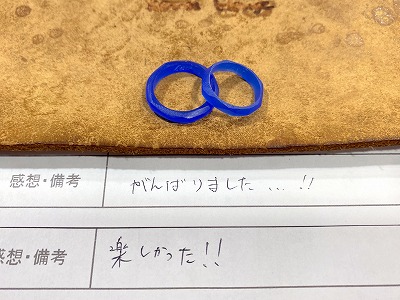 感想・備考 がんばりました...!!
感想・備考 楽しかった!!